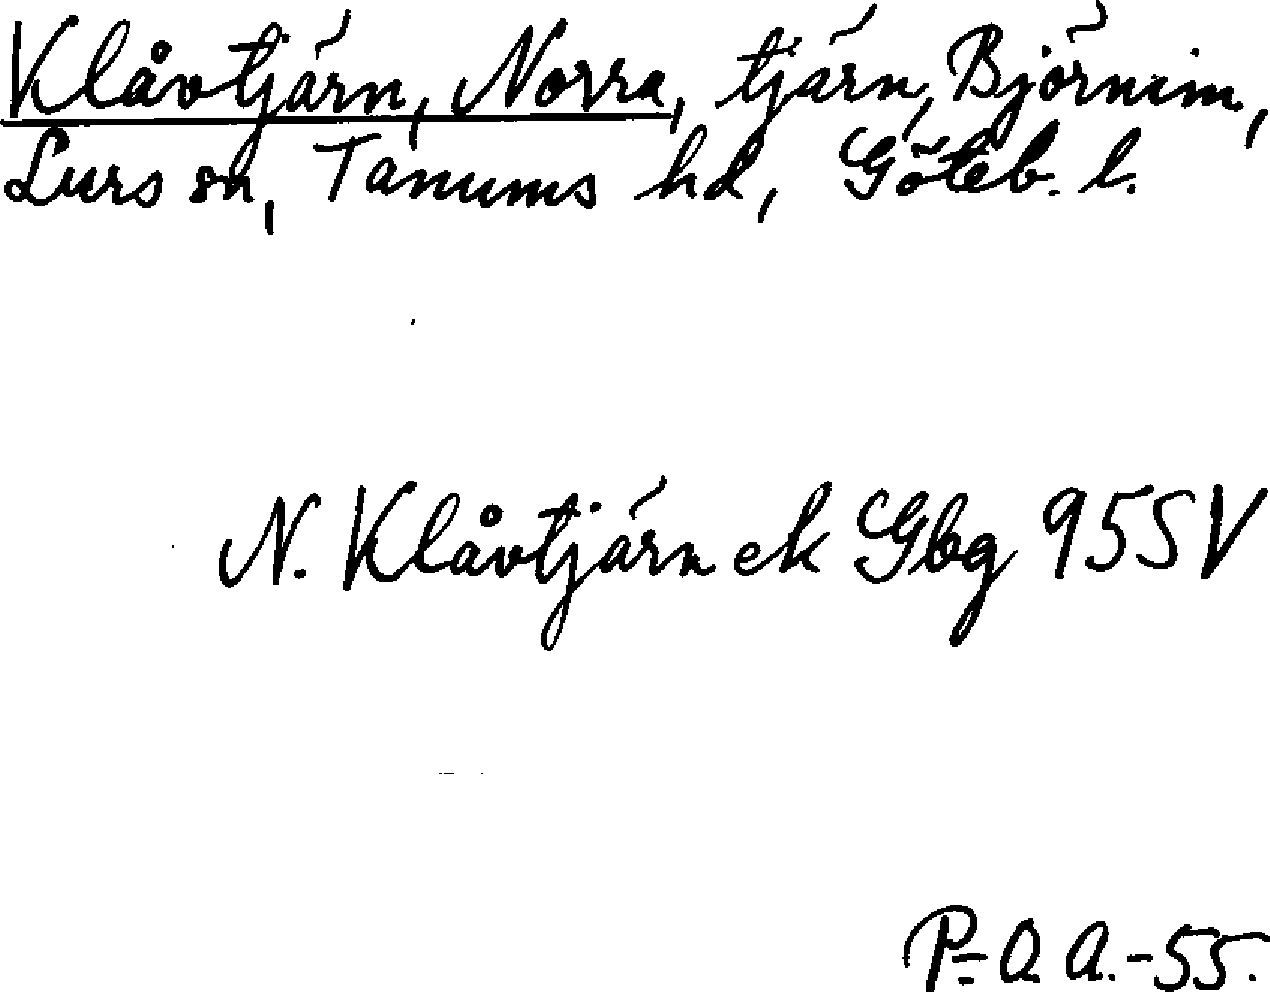 Klåvtjärn, Norra, tjärn, Björneim,
Lurs sn, Tanums hd, Göteb. l.
N. Klåvtjärn ek Gbg 95SV
P-O. A.-55.